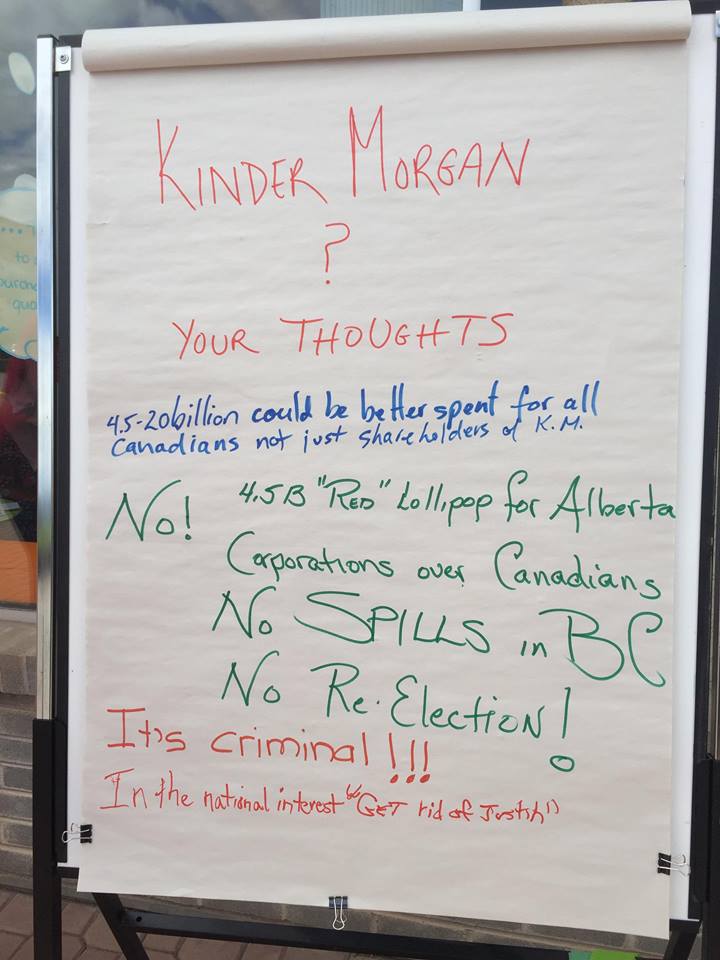 KINDER MORGAN
?
YOUR THOUGHTS
4.5-20billion could be better spent for all
Canadians not just shareholders of K.M.
No! 4.5B "RED" Lollipop for Alberta
Corporations over Canadians
No SPILLS in BC
No Re-Election!
It's criminal!!!
In the national interest "GET rid of Justin"
to
quo